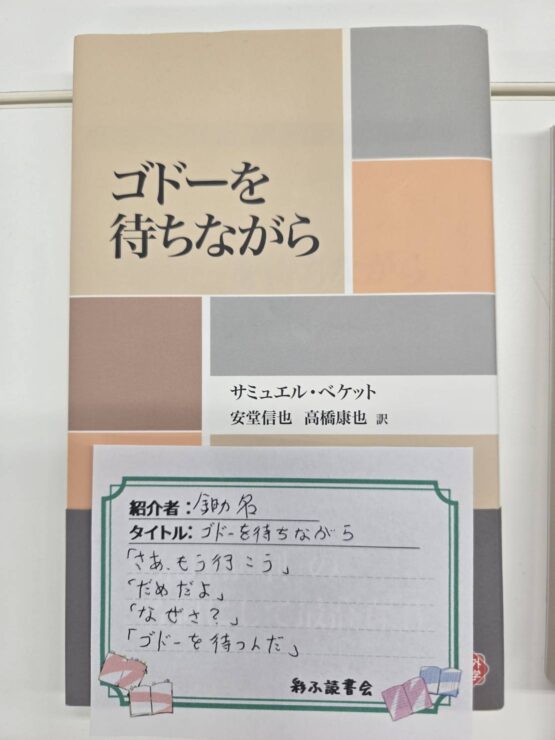 ゴドーを
待ちながら
サミュエル・ベケット
安堂信也 高橋康也 訳
紹介者:鋤名
タイトル:ゴドーを待ちながら
「さあ、もう行こう」
「だめだよ」
「なぜさ?」
「ゴドーを待つんだ」
彩ふ読書会